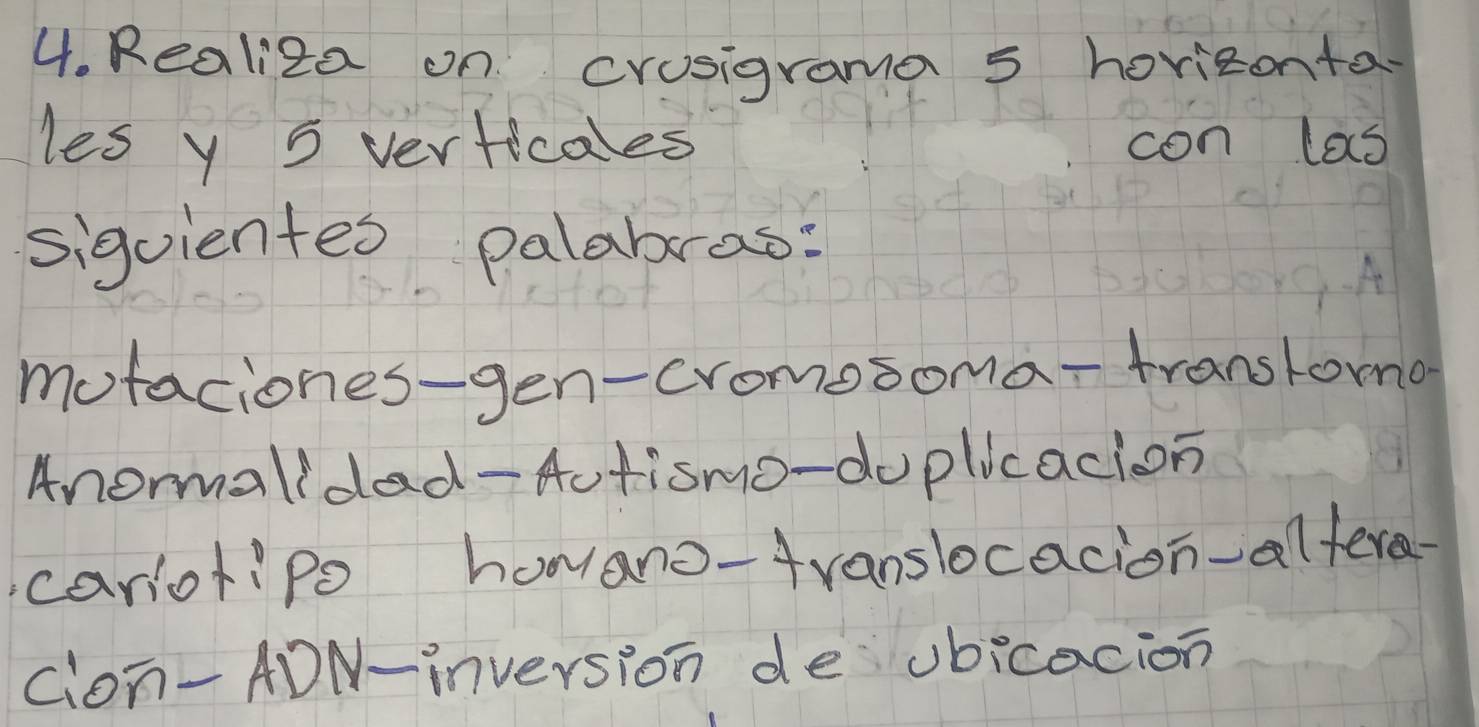 4. Realiza un crusigrama 5 horizonta-
les y 5 verticales con las
siguientes palabras:
mutaciones-gen-cromosoma-transtorno-
Anormalidad-Autismo-duplicación
cariotipo humano-translocación-altera-
ción-ADN-inversión de ubicación